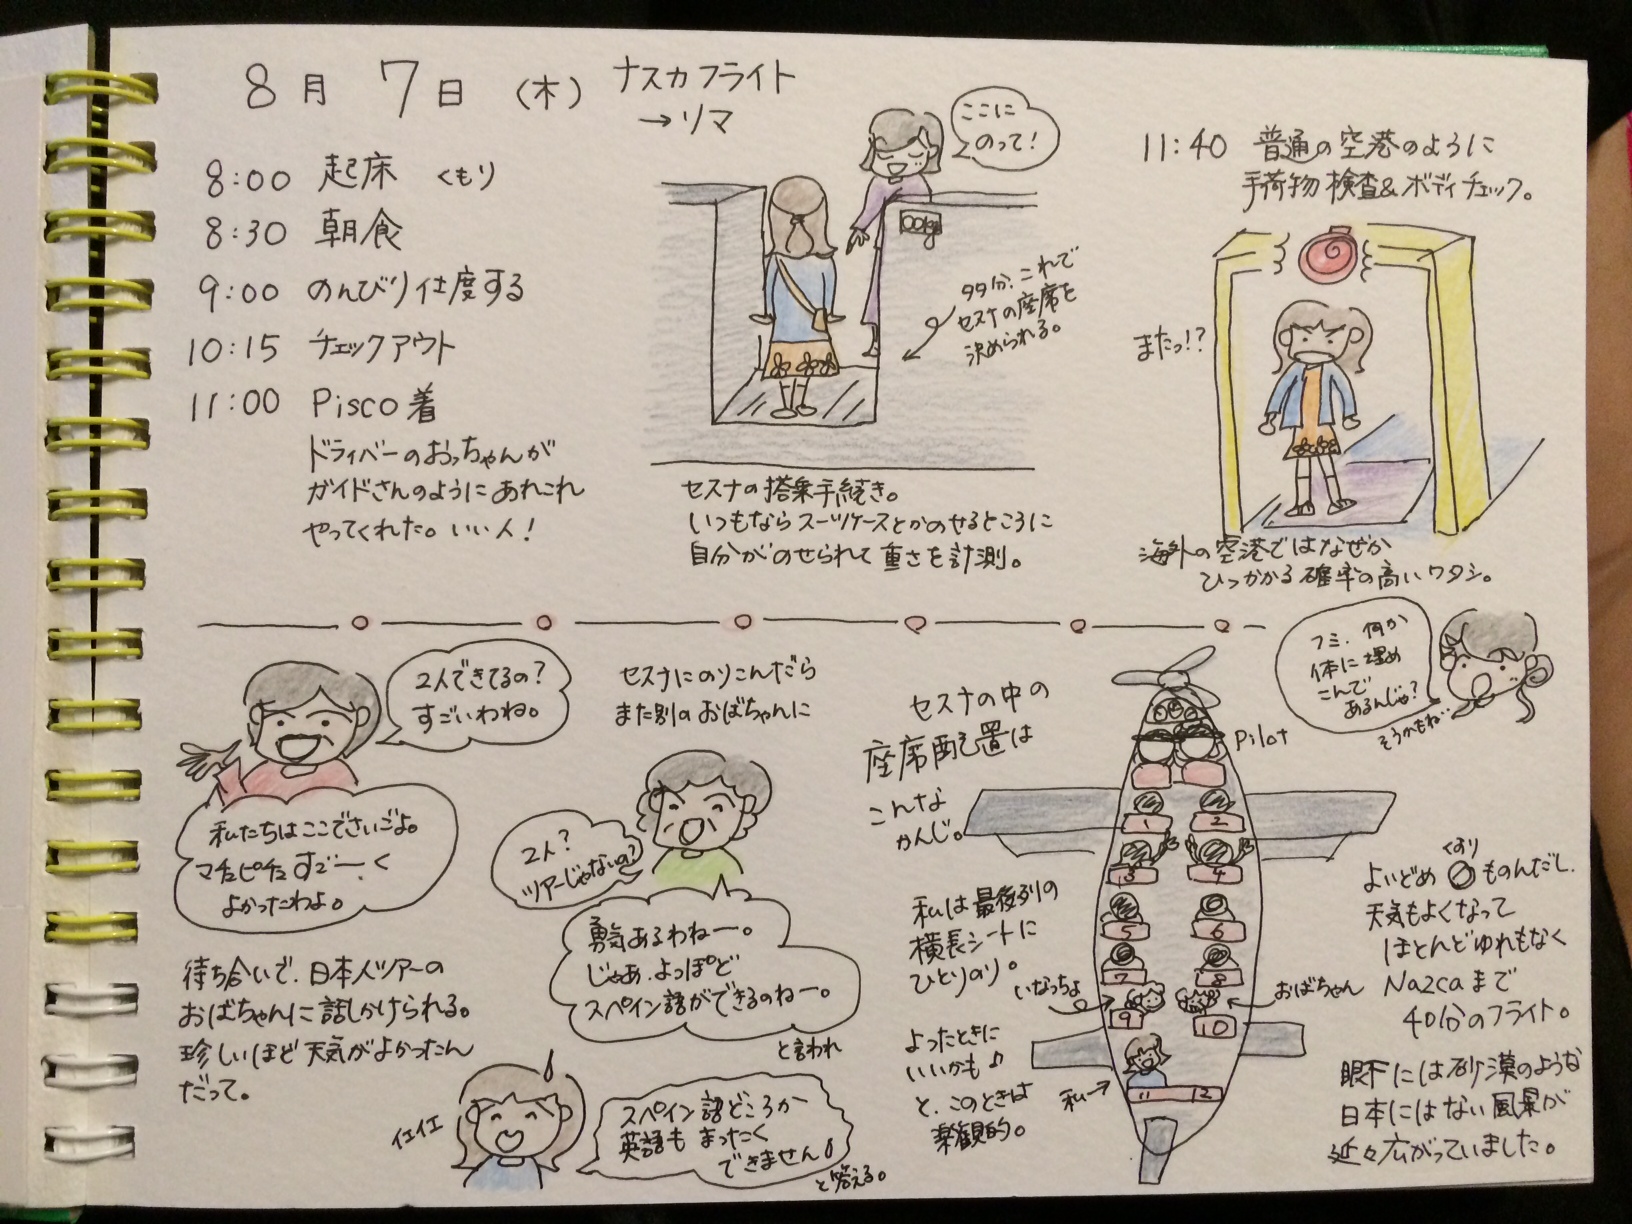 8月 7日 (木) ナスカフライト
→リマ
8:00 起床 くもり
8:30 朝食
9:00 のんびり仕度する
10:15 チェックアウト
11:00 Pisco着
ドライバーのおっちゃんが
ガイドさんのようにあれこれ
やってくれた。いい人!
ここに
のって!
00kg
多分、これで
セスナの座席を
決められる。
セスナの搭乗手続き。
いつもならスーツケースとかのせるところに
自分がのせられて重さを計測。
11:40 普通の空港のように
手荷物検査&ボディチェック。
またっ!?
海外の空港ではなぜか
ひっかかる確率の高いワタシ。
フミ、何か
体に埋め
こんで
あるんじゃ?
そうかもね…
2人できてるの?
すごいわね。
私たちはここでさいごよ。
マチュピチュすご〜く
よかったわよ。
待ち合いで、日本人ツアーの
おばちゃんに話しかけられる。
珍しいほど天気がよかったん
だって。
セスナにのりこんだら
また別のおばちゃんに
2人?
ツアーじゃないの?
勇気あるわねー。
じゃあ、よっぽど
スペイン語ができるのねー。
と言われ
イエイエ
スペイン語どころか
英語もまったく
できません♪
と答える。
セスナの中の
座席配置は
こんな
かんじ。
Pilot
1 2
3 4
5 6
7 8
9 10
11 12
私は最後列の
横長シートに
ひとりのり。
いなっちょ
おばちゃん
私→
よったときに
いいかも♪
と、このときは
楽観的。
くすり
よいどめ ものんだし、
天気もよくなって
ほとんどゆれもなく
Nazcaまで
40分のフライト。
眼下には砂漠のような
日本にはない風景が
延々広がっていました。